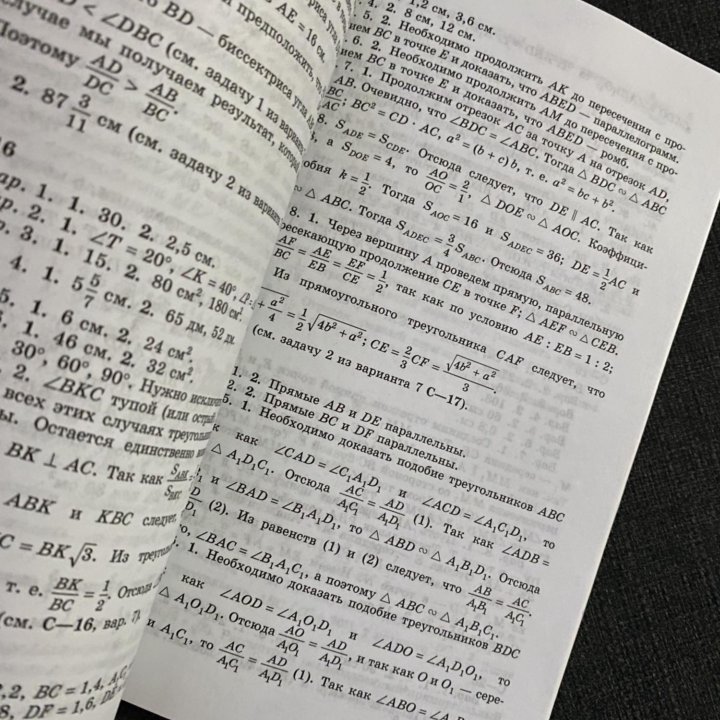 BD — биссектриса угла
AE = 18 см
D < ∠DBC (см. задачу 1 из
случае мы получаем результат,
Поэтому AD/DC > AB/BC.
2. 87 3/11 см (см. задачу 2 из варианта
16
ар. 1. 1. 30. 2. 2,5 см.
р. 2. 1. ∠T = 20°, ∠K = 40°,
3. 1. 15. 2. 80 см², 180 см².
4. 1. 5 5/7 см. 2. 65 дм, 52 дм.
5. 1. 6 см. 2. 24 см².
1. 46 см. 2. 32 см².
30°, 60°, 90°. Нужно
2. ∠BKC тупой (или
всех этих случаях
ы. Остается единственно
BK ⊥ AC. Так как
ABK и KBC следует,
C = BK√3. Из
т. е. BK/BC = 1/2.
(см. С—16, вар. 7).
2,2, BC = 1,4,
8, DF = 1,6,
1,2 см, 3,6 см.
4. 2. 8 см, 12 см.
5. 2. Необходимо продолжить AK до пересечения с про-
ием BC в точке E и доказать, что ABED — параллелограмм.
6. 2. Необходимо продолжить AM до пересечения с про-
ием BC в точке E и доказать, что ABED — ромб.
7. 1. Продолжим отрезок AC за точку A на отрезок AD,
AB. Очевидно, что ∠BDC = ∠ABC. Тогда △ BDC ∽ △ ABC
BC/AC; BC² = CD · AC, a² = (b + c) b, т. е. a² = bc + b².
8. S_ADE = S_CDE. Отсюда следует, что DE ∥ AC. Так как
а S_DOE = 4, то AO/OC = 2/1, △ DOE ∽ △ AOC. Коэффици-
обия k = 1/2. Тогда S_AOC = 16 и S_ADEC = 36; DE = 1/2 AC и
∽ △ ABC. Тогда S_ADEC = 3/4 S_ABC. Отсюда S_ABC = 48.
8. 1. Через вершину A проведем прямую, параллельную
ресекающую продолжение CE в точке F; △ AEF ∽ △ CEB.
AF/BC = AE/EB = EF/CE = 1/2, так как по условию AE : EB = 1 : 2;
Из прямоугольного треугольника CAF следует, что
+ a²/4 = 1/2 √(4b² + a²); CE = 2/3 CF = √(4b² + a²)/3.
(см. задачу 2 из варианта 7 С—17).
1. 2. Прямые AB и DE параллельны.
2. 2. Прямые BC и DF параллельны.
5. 1. Необходимо доказать подобие треугольников ABC
к как ∠CAD = ∠C₁A₁D₁ и ∠ACD = ∠A₁C₁D₁, то
△ A₁D₁C₁. Отсюда AC/A₁C₁ = AD/A₁D₁ (1). Так как ∠ADB =
и ∠BAD = ∠B₁A₁D₁, то △ ABD ∽ △ A₁B₁D₁. Отсюда
(2). Из равенств (1) и (2) следует, что AB/A₁B₁ = AC/A₁C₁.
о, ∠BAC = ∠B₁A₁C₁, а поэтому △ ABC ∽ △ A₁B₁C₁.
1. Необходимо доказать подобие треугольников BDC
как ∠AOD = ∠A₁O₁D₁ и ∠ADO = ∠A₁D₁O₁, то
△ A₁O₁D₁. Отсюда AO/A₁O₁ = AD/A₁D₁, и так как O и O₁ — сере-
и A₁C₁, то AC/A₁C₁ = AD/A₁D₁ (1). Так как ∠ABO =